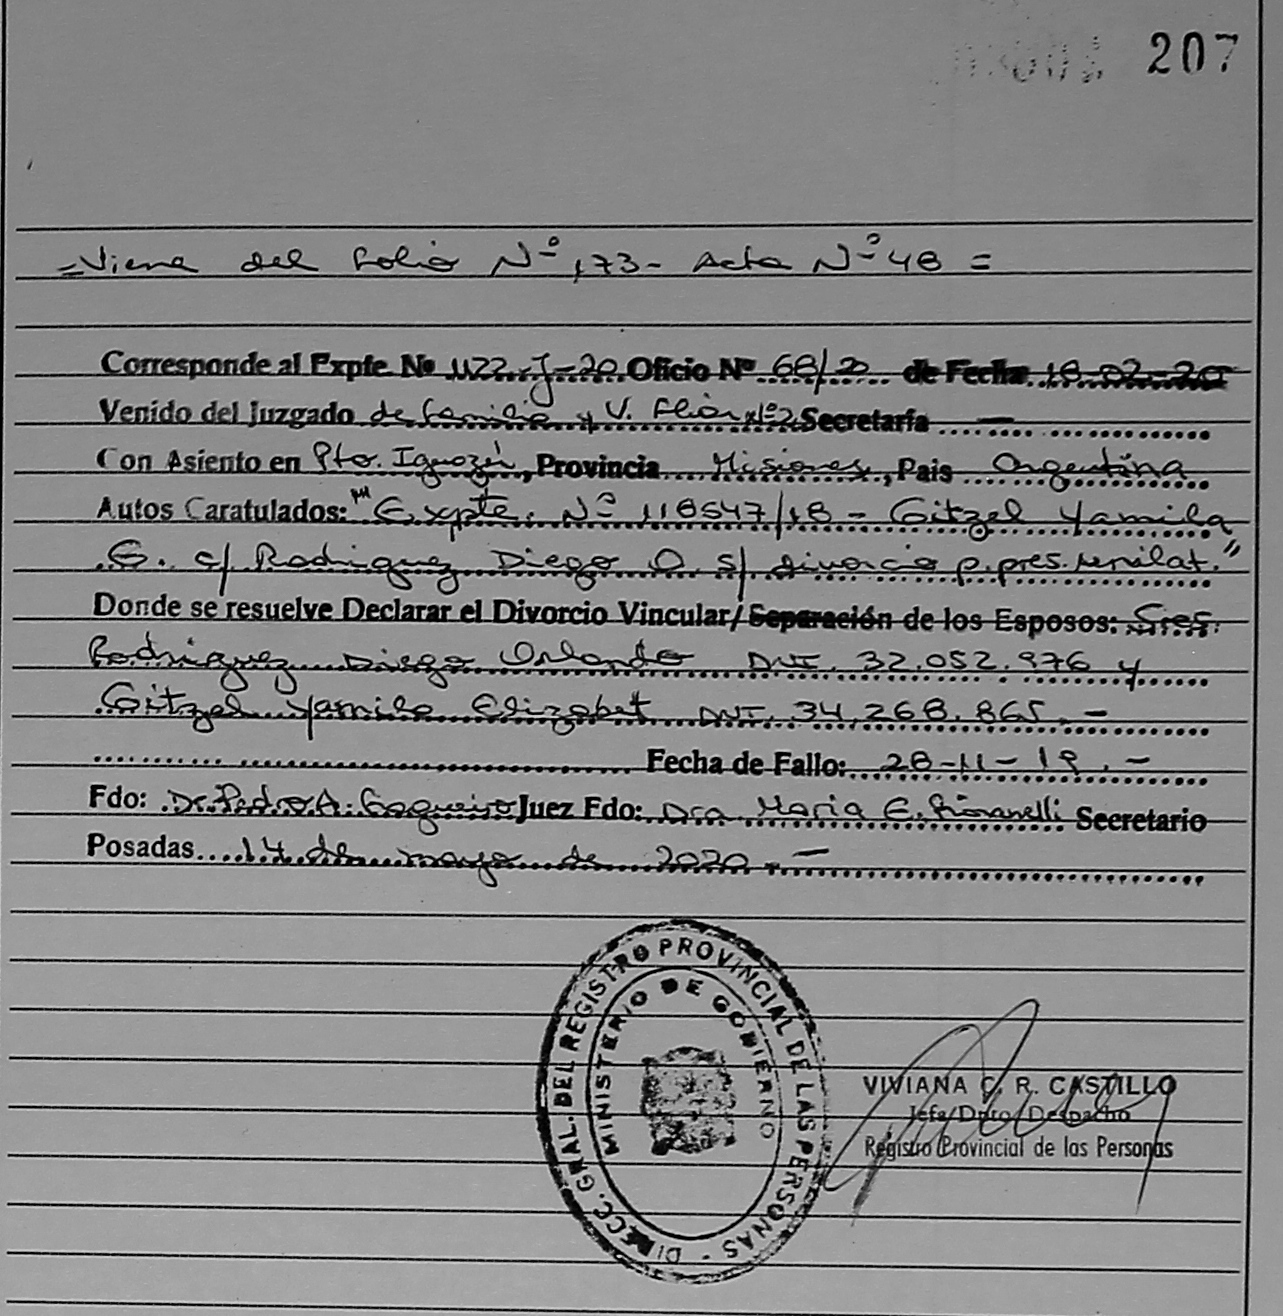 207
=Viene del folio Nº 173- Acta Nº 48 =
Corresponde al Expte Nº 1122-J-20 Oficio Nº 68/20 de Fecha 18-02-20
Venido del Juzgado de Familia y V. Fliar Nº2 Secretaría —
Con Asiento en Pto. Iguazú, Provincia Misiones, Pais Argentina
Autos Caratulados: "Expte. Nº 118547/18 - Gitzel Yamila
E. c/ Rodriguez Diego O. s/ divorcio p. pres. unilat."
Donde se resuelve Declarar el Divorcio Vincular/Separación de los Esposos: Sres.
Rodriguez Diego Orlando DNI. 32.052.976 y
Gitzel Yamila Elizabet DNI. 34.268.865.-
Fecha de Fallo: 28-11-19.-
Fdo: Dr. Pedro A. Juez Fdo: Dra. Maria E. Secretario
Posadas 14 de mayo de 2020.-
DIRECC. GRAL. DEL REGISTRO PROVINCIAL DE LAS PERSONAS -
MINISTERIO DE GOBIERNO
VIVIANA C. R. CASTILLO
Jefa Dpto Despacho
Registro Provincial de las Personas